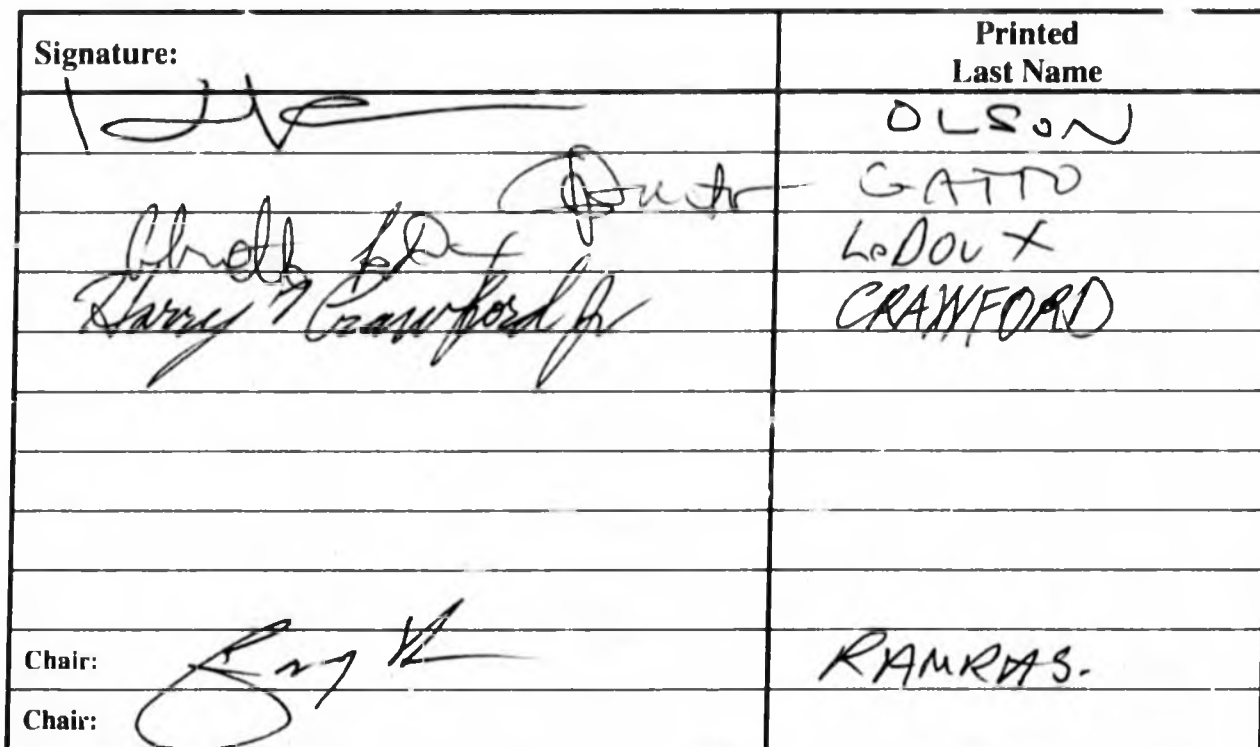 Signature:
Printed
Last Name
OLSON
GATTO
LeDoux
Harry T Crawford Jr
CRAWFORD
Chair:
RAMRAS.
Chair: